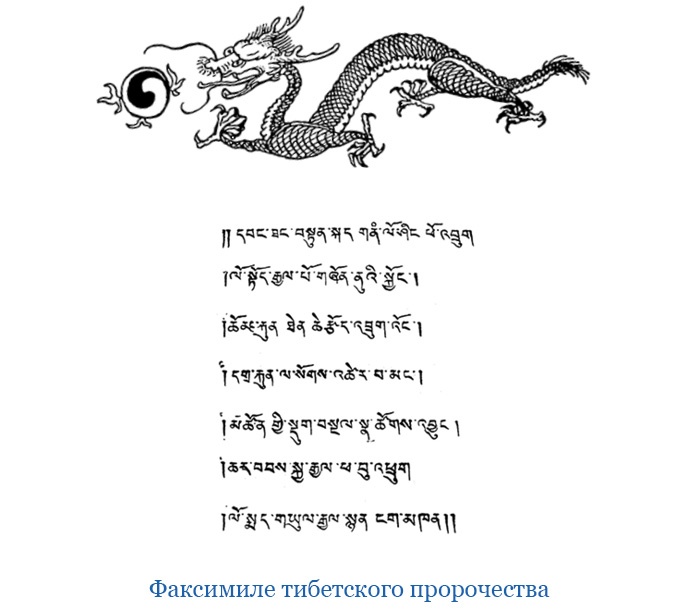 ༎ དབང་ཐང་བསྟུན་སྐད གནཾ་ལོ་ཤིང ཕོ་འབྲུག
།ལོ་སྟོད་རྒྱལ་པོ་གཞོན་ནུའི་སྐྱོང་།
།རྐུན ཐེན་ཆེ་རྩོད་འཇུག་འོང་།
།དགྲ་རྐུན་ལ་སོགས་འཚེ་ར་བ་མང་།
།མཚོན་གྱི་སྡུག་བསྔལ་སྣ་ཚོགས་འབྱུང །
།ཆར་བབས་སྐྱ་རྒྱལ་ཕ་བུ་འཕྲུག
།ལོ་སྨད་གཡུལ་རྒྱལ་སྙན ངག་མཁན།།
Факсимиле тибетского пророчества